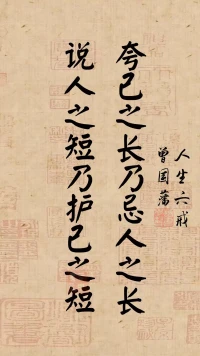 人生六戒
曾国藩
夸己之长乃忌人之长
说人之短乃护己之短